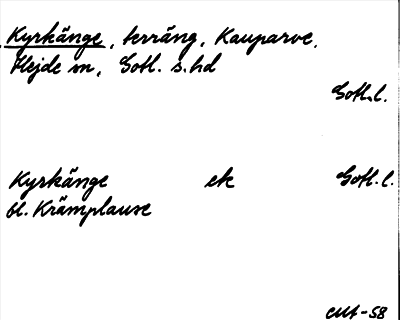 Kyrkänge, terräng, Kauparve,
Hejde sn, Gotl. s. hd
Gotl. l.
Kyrkänge ek Gotl. l.
bl. Krämplause